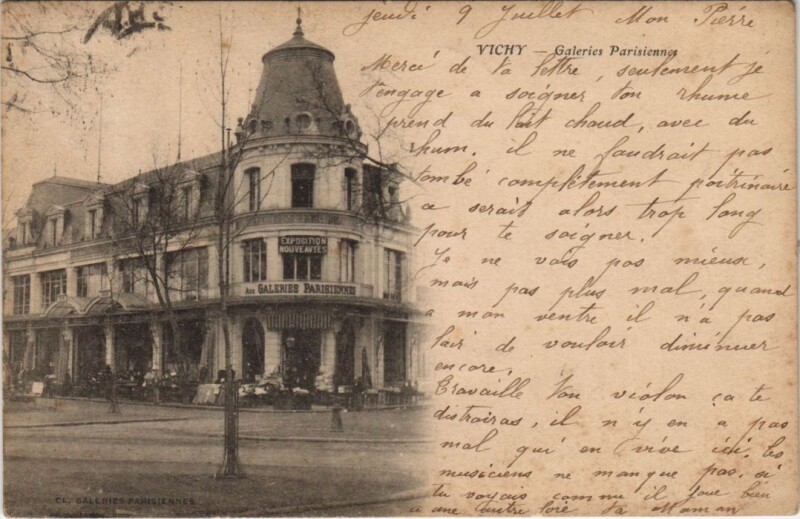 jeudi 9 Juillet Mon Pierre
VICHY — Galeries Parisiennes
Mercé de ta lettre, seulement je
t'engage a soigner ton rhume
prend du lait chaud, avec du
rhum. il ne faudrait pas
tombé complètement poitrinaire
ce serait alors trop long
pour te soigner.
Je ne vais pas mieux,
mais pas plus mal, quand
a mon ventre il n'a pas
lair de vouloir diminuer
encore.
Travaille ton violon ça te
distrairas, il n'y en a pas
mal qui en vive ici. les
musiciens ne manque pas. si
tu voyais comme il joue bien
a une autre fois Ta Maman
EXPOSITION
NOUVEAUTÉS
AUX GALERIES PARISIENNES
CL. GALERIES PARISIENNES